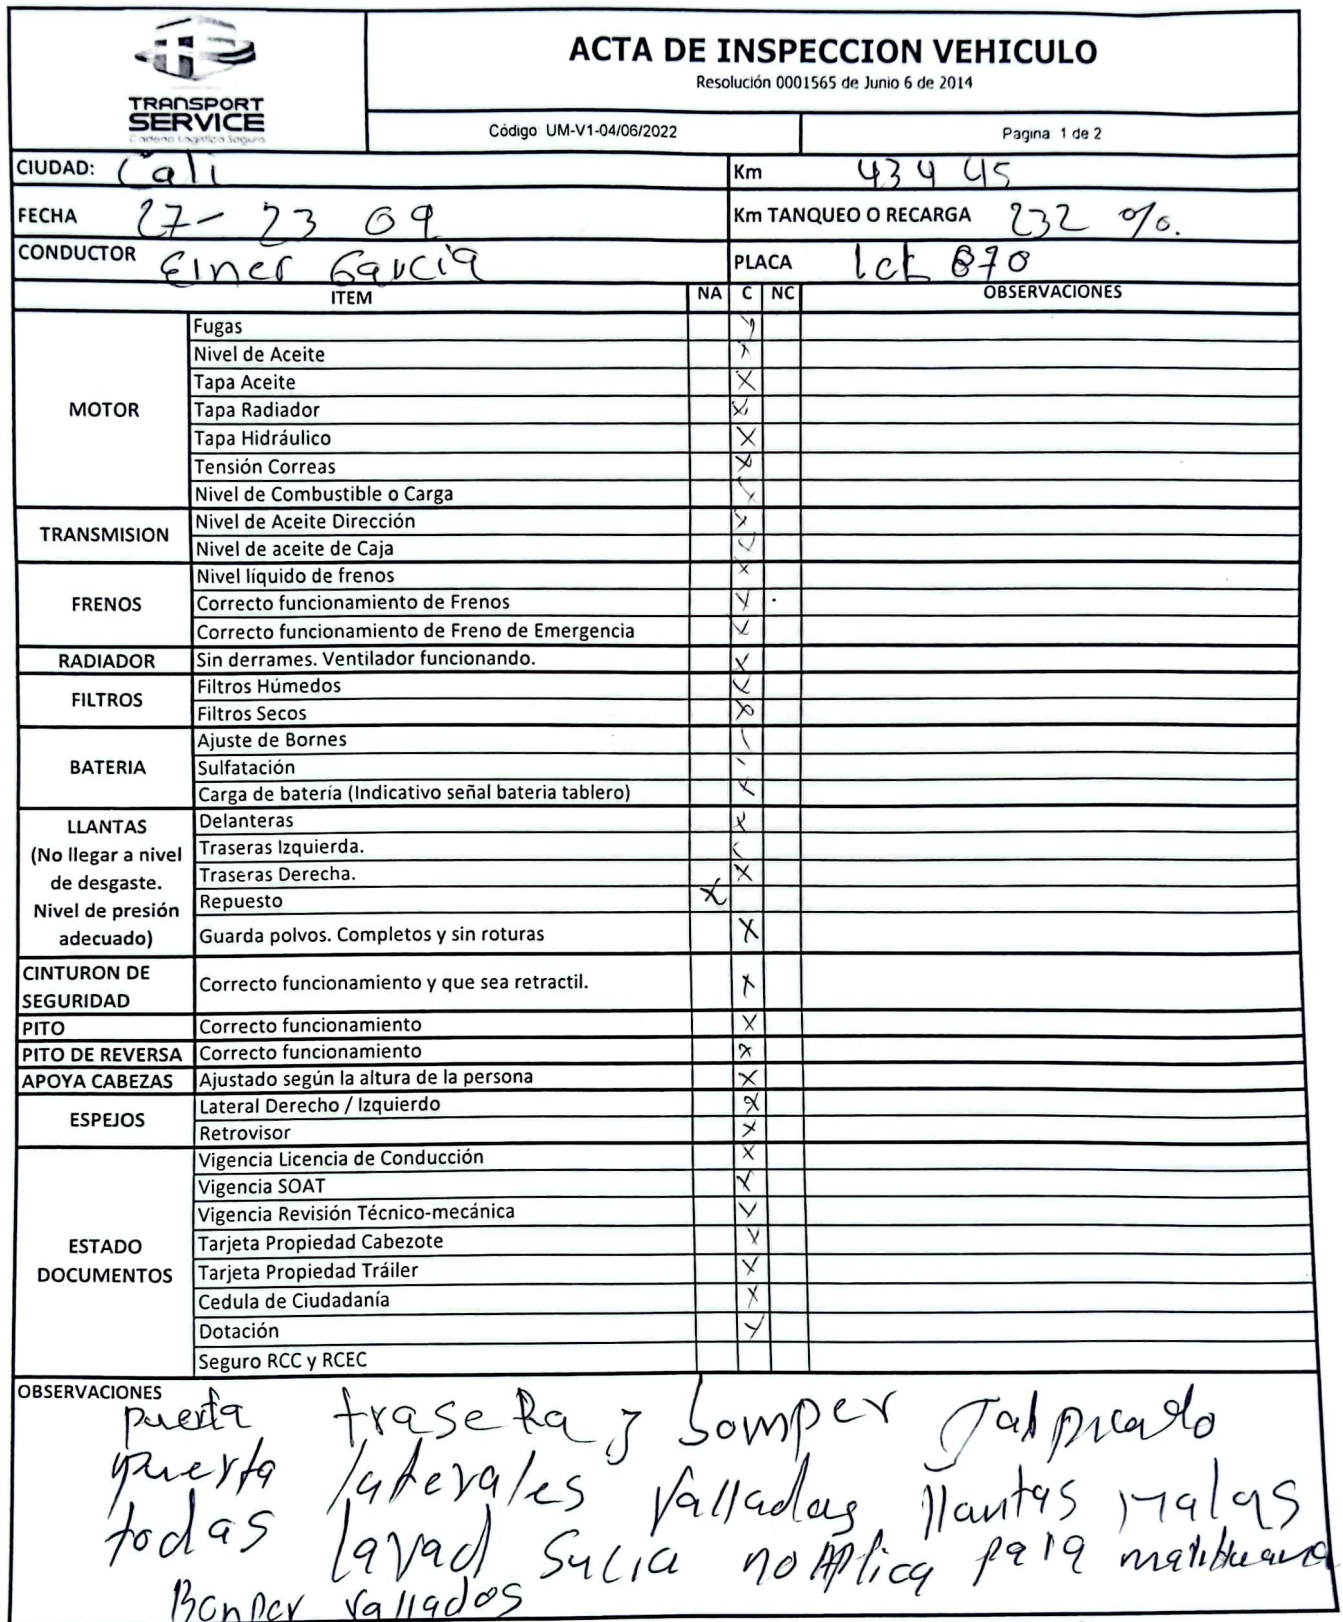 TRANSPORT
SERVICE
Cadena Logística Segura
ACTA DE INSPECCION VEHICULO
Resolución 0001565 de Junio 6 de 2014
Código UM-V1-04/06/2022
Pagina 1 de 2
CIUDAD: Cali
Km 434 45
FECHA 27- 23 09
Km TANQUEO O RECARGA 232 %.
CONDUCTOR Einer Garcia
PLACA lck 870
ITEM NA C NC OBSERVACIONES
MOTOR
Fugas
Nivel de Aceite X
Tapa Aceite X
Tapa Radiador X
Tapa Hidráulico X
Tensión Correas X
Nivel de Combustible o Carga X
TRANSMISION
Nivel de Aceite Dirección X
Nivel de aceite de Caja
FRENOS
Nivel líquido de frenos X
Correcto funcionamiento de Frenos X
Correcto funcionamiento de Freno de Emergencia X
RADIADOR
Sin derrames. Ventilador funcionando. X
FILTROS
Filtros Húmedos X
Filtros Secos X
BATERIA
Ajuste de Bornes
Sulfatación
Carga de batería (Indicativo señal bateria tablero) X
LLANTAS
(No llegar a nivel
de desgaste.
Nivel de presión
adecuado)
Delanteras X
Traseras Izquierda.
Traseras Derecha. X
Repuesto X
Guarda polvos. Completos y sin roturas X
CINTURON DE
SEGURIDAD
Correcto funcionamiento y que sea retractil. X
PITO Correcto funcionamiento X
PITO DE REVERSA Correcto funcionamiento X
APOYA CABEZAS Ajustado según la altura de la persona X
ESPEJOS
Lateral Derecho / Izquierdo X
Retrovisor X
ESTADO
DOCUMENTOS
Vigencia Licencia de Conducción X
Vigencia SOAT X
Vigencia Revisión Técnico-mecánica X
Tarjeta Propiedad Cabezote X
Tarjeta Propiedad Tráiler X
Cedula de Ciudadanía X
Dotación X
Seguro RCC y RCEC
OBSERVACIONES
puerta trasera y bomper
puerta laterales Valladas llantas malas
todas lavad sucia no Aplica para
Bonper rallados